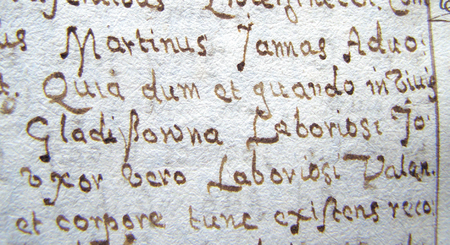 us Martinus Jannas Aduo:
t. Quia dum et quando in Viuis
Gladißowna Laboriosi Jo:
Vxor Vero Laboriosi Valen:
et corpore tunc existens reco: